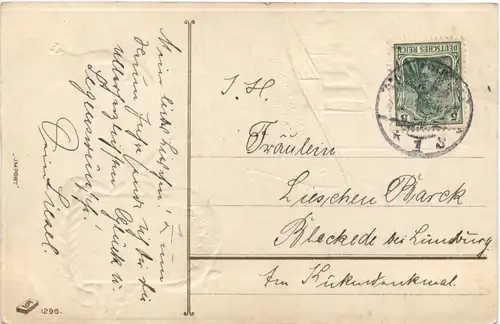 Mein liebes Lieschen! Zum
neuen Jahre sende ich dir die
allerherzlichsten Glück u.
Segenswünsche!
Dein Liesel.
"IMPORT"
1296-
DEUTSCHES REICH
5
I. H.
Fräulein
Lieschen Barck
Bleckede bei Lüneburg
Am